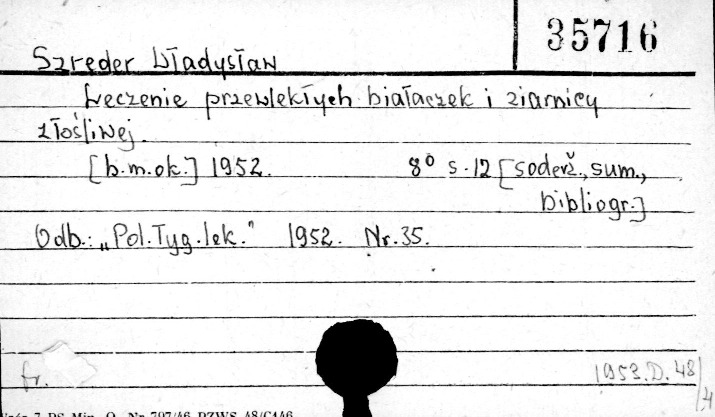 35716
Szreder Władysław
Leczenie przewlekłych białaczek i ziarnicy
złośliwej.
[b.m.ok.] 1952. 8° s.12 [soderž., sum.,
bibliogr.]
Odb.: „Pol.Tyg.lek." 1952. Nr.35.
fr.
1953.D.48/4
7 PS Min. O. Nr 797/46 PZWS 48/C446